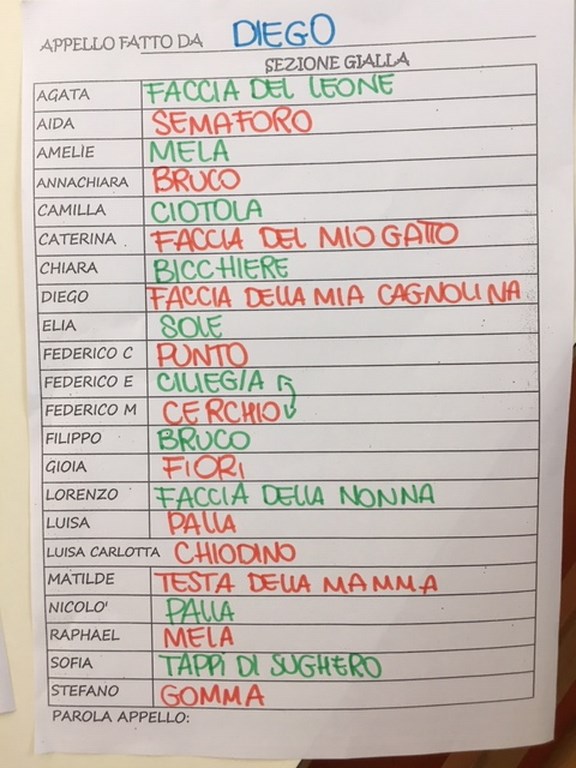 APPELLO FATTO DA DIEGO
SEZIONE GIALLA
AGATA FACCIA DEL LEONE
AIDA SEMAFORO
AMELIE MELA
ANNACHIARA BRUCO
CAMILLA CIOTOLA
CATERINA FACCIA DEL MIO GATTO
CHIARA BICCHIERE
DIEGO FACCIA DELLA MIA CAGNOLINA
ELIA SOLE
FEDERICO C PUNTO
FEDERICO E CILIEGIA
FEDERICO M CERCHIO
FILIPPO BRUCO
GIOIA FIORI
LORENZO FACCIA DELLA NONNA
LUISA PALLA
LUISA CARLOTTA CHIODINO
MATILDE TESTA DELLA MAMMA
NICOLO' PALLA
RAPHAEL MELA
SOFIA TAPPI DI SUGHERO
STEFANO GOMMA
PAROLA APPELLO: